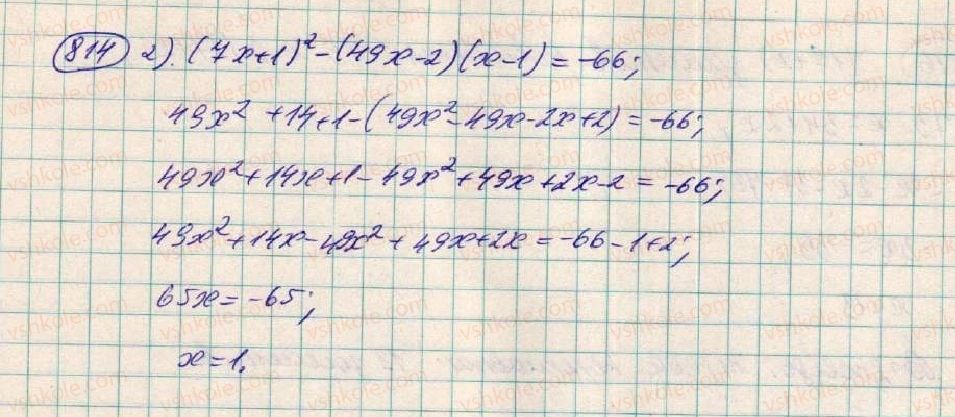 814 2). (7x+1)² - (49x-2)(x-1) = -66;
49x² + 14 + 1 - (49x² - 49x - 2x + 2) = -66;
49x² + 14x + 1 - 49x² + 49x + 2x - 2 = -66;
49x² + 14x - 49x² + 49x + 2x = -66 - 1 + 2;
65x = -65;
x = 1.